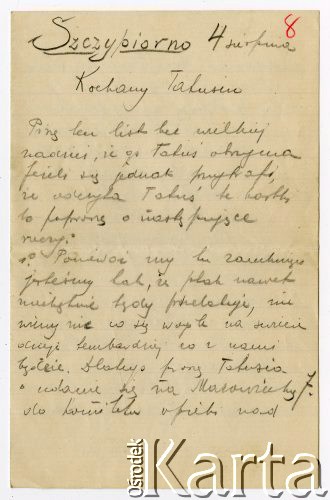 Szczypiorno 4 sierpnia
8
Kochany Tatusiu
Piszę ten list bez wielkiej
nadziei, że go Tatuś otrzyma
jeżeli się jednak przytrafi
że odczyta Tatuś te kartki
to poproszę o następujące
rzeczy:
1º Ponieważ my tu zamknięci
jesteśmy tak, że ptak nawet
niechętnie tędy przelatuje, nie
wiemy nic co się wogóle na świecie
dzieje tembardziej co z nami
będzie. Dlatego proszę Tatusia
o udanie się na Mazowiecką 7.
do komitetu opieki nad
ośrodek
Karta